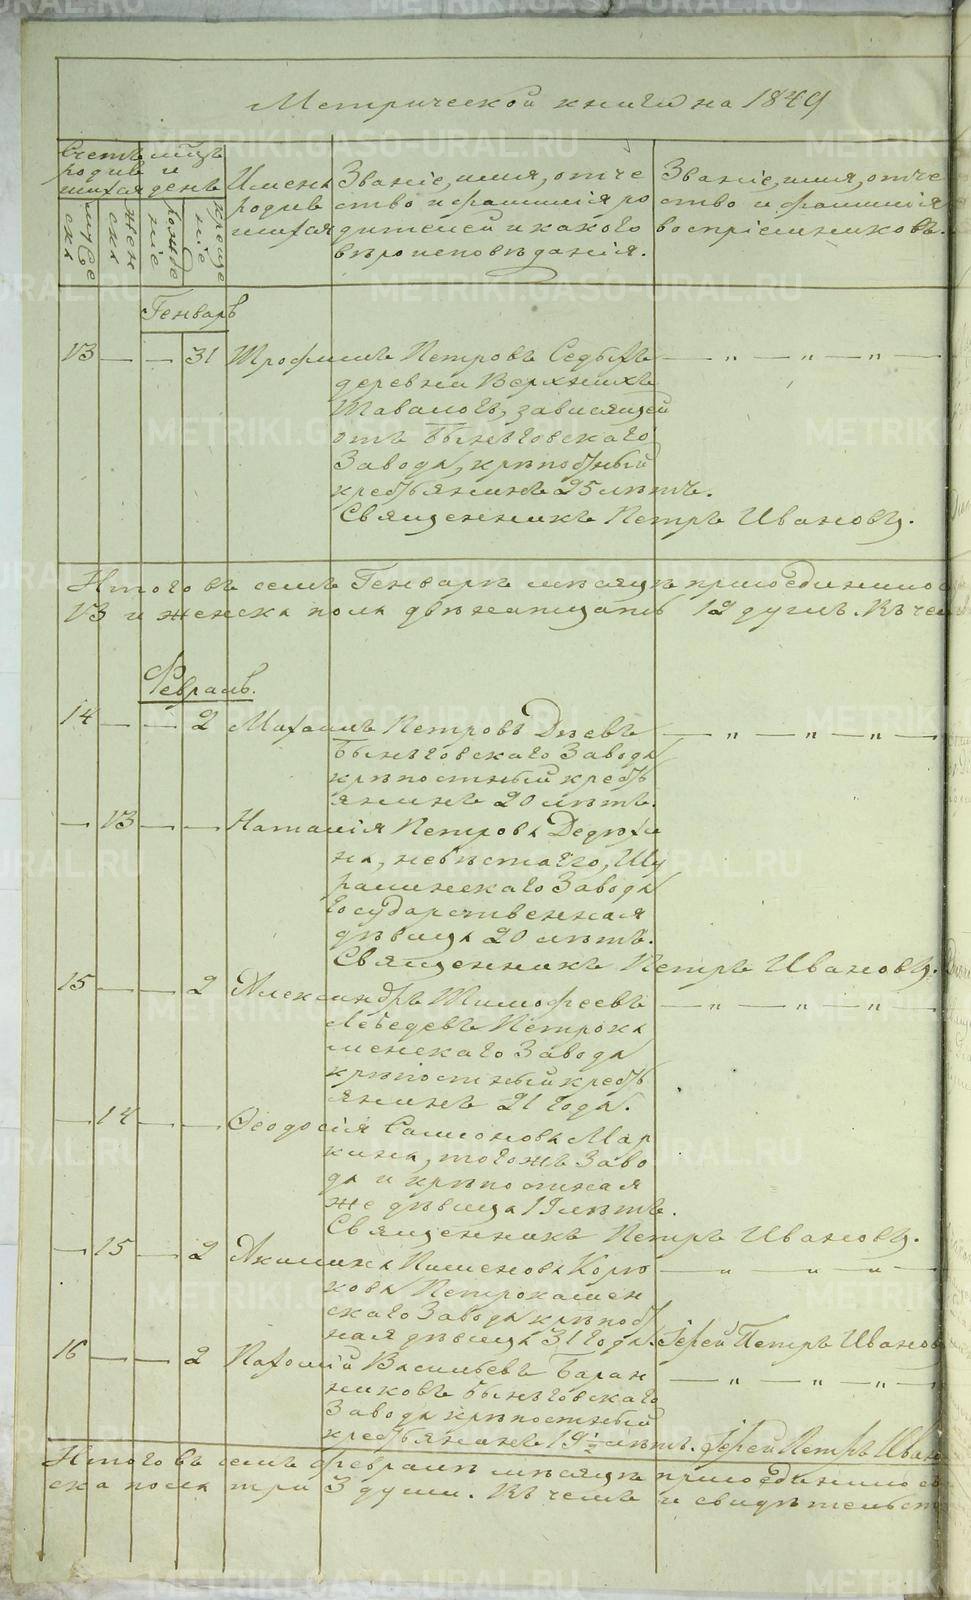 Метрической книги на 1849
Счетъ родившихся
мужеска
женска
Мѣсяцъ и день
рожденіе
крещеніе
Имена родившихся
Званіе, имя, отче
ство и фамилія ро
дителей и какого
вѣроисповѣданія.
Званіе, имя, отче
ство и фамилія
воспріемниковъ.
Генварь
13 — — 31 Трофимъ Петровъ Седыхъ — „ — „ — „ —
деревни Верхнихъ
Тавологъ, зависящей
отъ Быньговскаго
Завода, крѣпостный
крестьянинъ 25 лѣтъ.
Священникъ Петръ Ивановъ.
Итого въ семъ Генварѣ мѣсяцѣ присоединено
13 и женска пола двѣнатцать 12 душъ. Въ чем
Февраль.
14 — — 2 Махаилъ Петровъ Дѣевъ — „ — „ — „ —
Быньговскаго Завода
крѣпостный кресть
янинъ 20 лѣтъ.
— 13 — — Наталія Петрова Дедюхи
на, невѣста его, Шу
ралинскаго Завода
Государственная
дѣвица 20 лѣтъ.
Священникъ Петръ Ивановъ.
15 — — 2 Александръ Тимофеевъ — „ — „ — „ —
Лебедевъ Петрока
менскаго Завода
крѣпостный кресть
янинъ 21 года.
— 14 — — Ѳеодосія Самсонова Мар
кина, того жъ Заво
да и крѣпостная
же дѣвица 19 лѣтъ.
Священникъ Петръ Ивановъ.
— 15 — 2 Акилина Пименова Корю — „ — „ — „ —
кова Петрокамен
скаго Завода крѣпост
ная дѣвица 31 года. Іерей Петръ Иванов
16 — — 2 Пахомій Васильевъ Баран — „ — „ — „ —
никовъ Быньговскаго
Завода крѣпостный
крестьянинъ 19 ½ лѣтъ. Іерей Петръ Иван
Итого въ семъ февралѣ мѣсяцѣ присоединено
ска пола три 3 души. Въ чемъ и свидѣтельст
METRIKI.GASO-URAL.RU